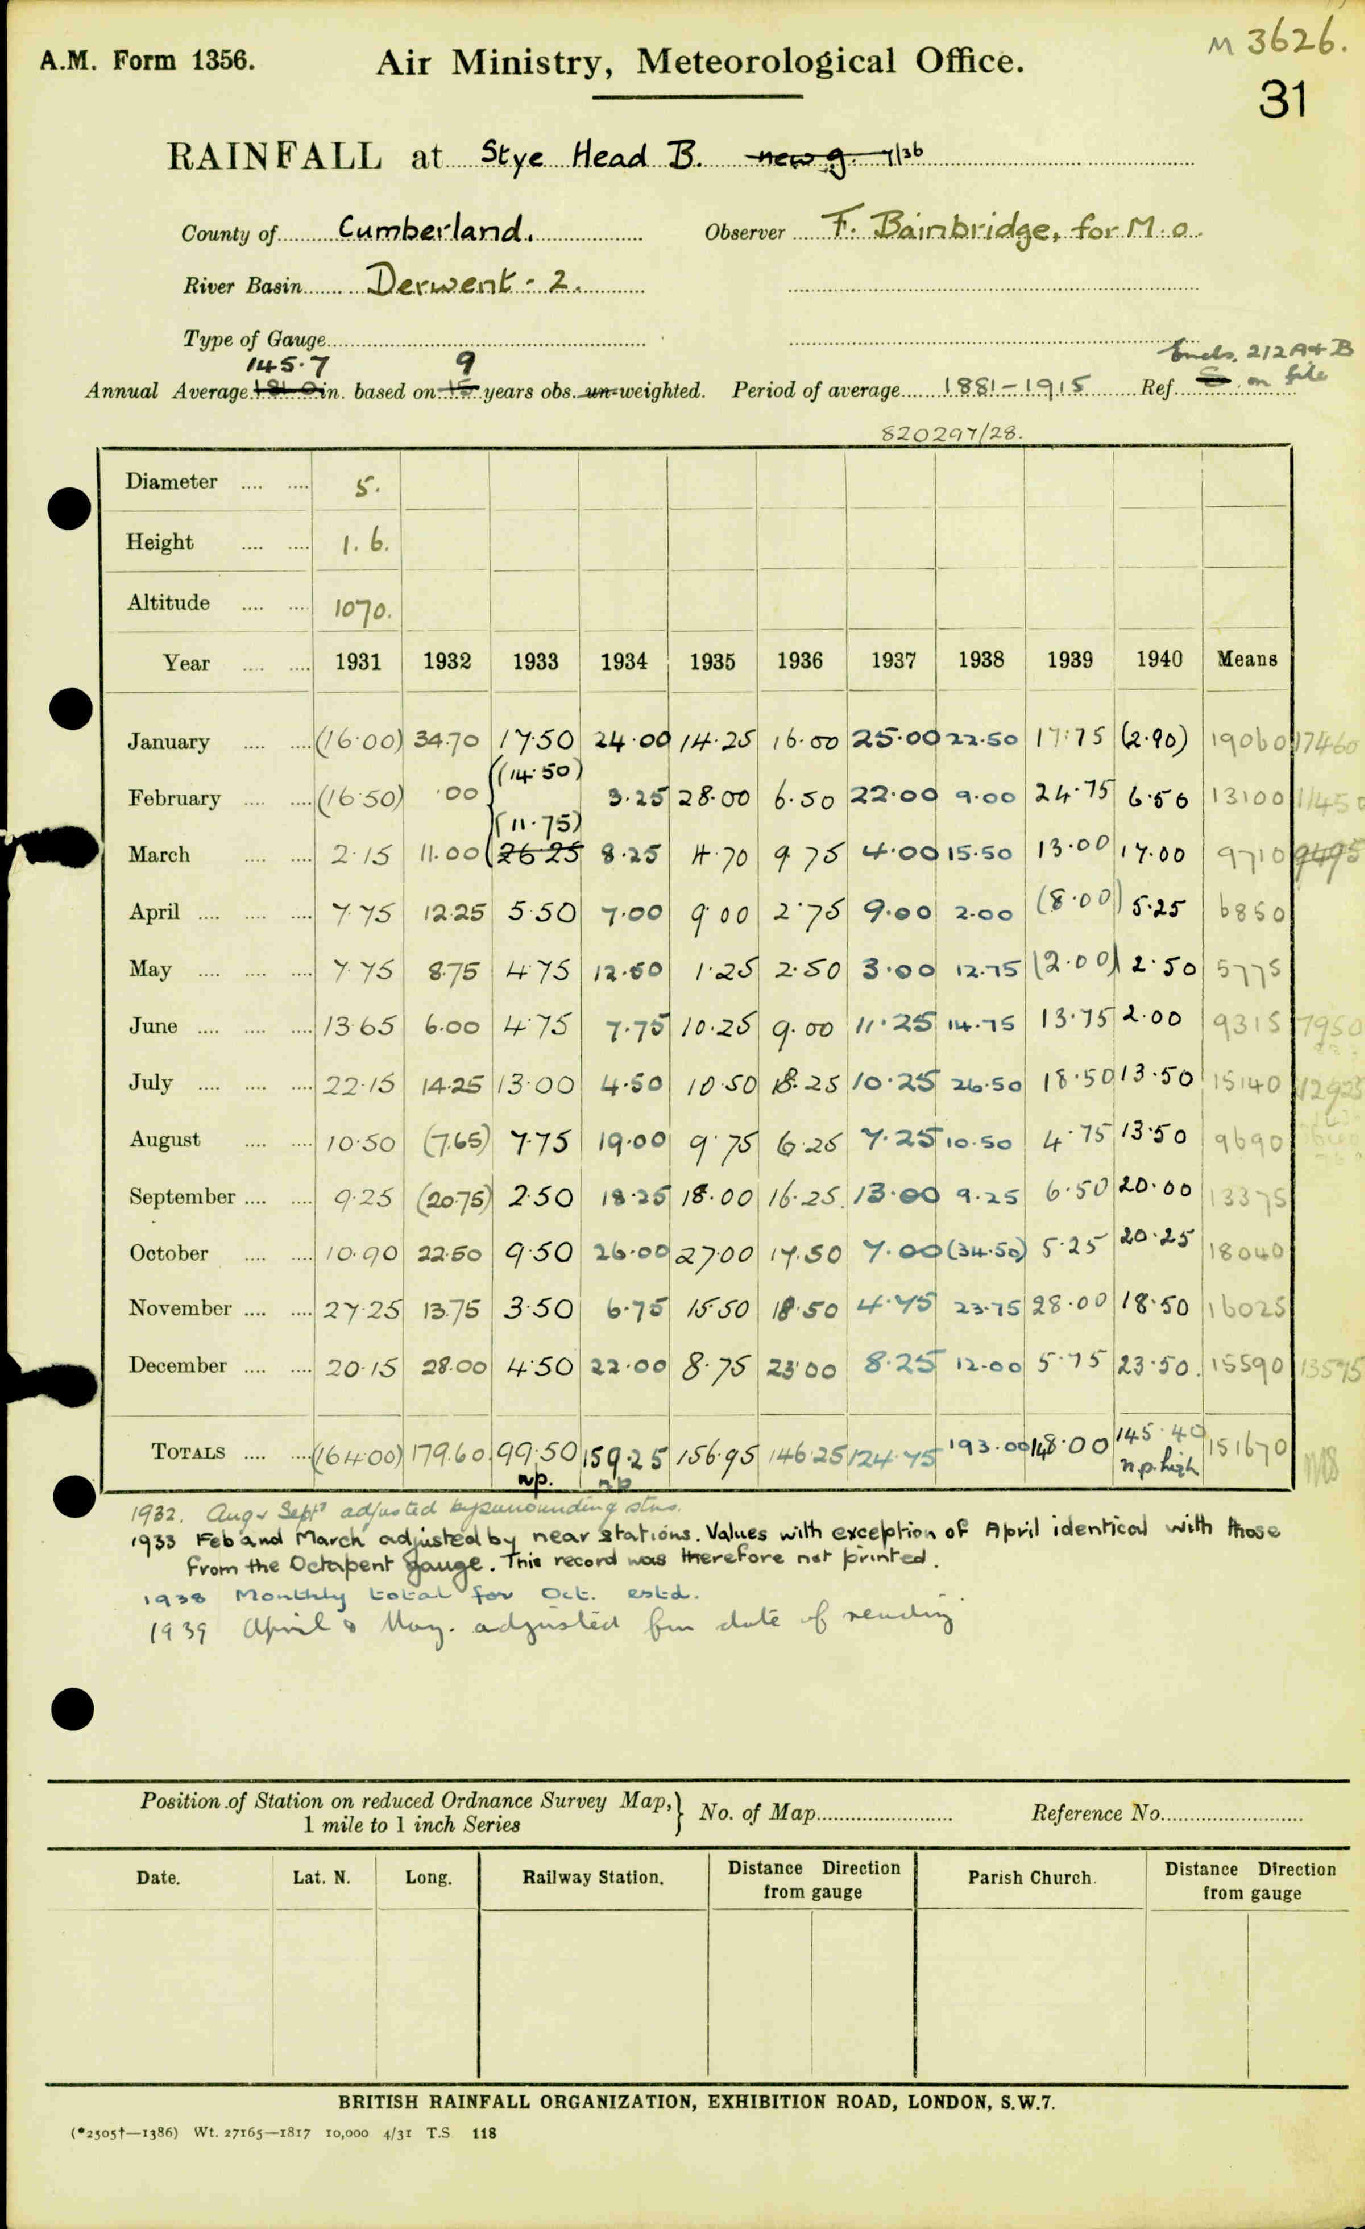 M 3626.
A.M. Form 1356. Air Ministry, Meteorological Office.
31
RAINFALL at Stye Head B. new g. 7/36
County of Cumberland. Observer F. Bainbridge, for M.O.
River Basin Derwent - 2.
Type of Gauge
145.7 9 Encls. 212A+B
Annual Average 181.0 in. based on 15 years obs. un-weighted. Period of average 1881-1915 Ref. on file
820297/28.
Diameter 5.
Height 1.6.
Altitude 1070.
Year 1931 1932 1933 1934 1935 1936 1937 1938 1939 1940 Means
January (16.00) 34.70 17.50 24.00 14.25 16.00 25.00 22.50 17.75 (2.90) 19060 17460
February (16.50) .00 (14.50) 3.25 28.00 6.50 22.00 9.00 24.75 6.50 13100 11450
(11.75)
March 2.15 11.00 26.25 8.25 4.70 9.75 4.00 15.50 13.00 17.00 9710 9495
April 7.75 12.25 5.50 7.00 9.00 2.75 9.00 2.00 (8.00) 5.25 6850
May 7.75 8.75 4.75 12.50 1.25 2.50 3.00 12.75 (2.00) 2.50 5775
June 13.65 6.00 4.75 7.75 10.25 9.00 11.25 14.75 13.75 2.00 9315 7950
July 22.15 14.25 13.00 4.50 10.50 18.25 10.25 26.50 18.50 13.50 15140 12925
August 10.50 (7.65) 7.75 19.00 9.75 6.25 7.25 10.50 4.75 13.50 9690
September 9.25 (20.75) 2.50 18.25 18.00 16.25 13.00 9.25 6.50 20.00 13375
October 10.90 22.50 9.50 26.00 27.00 17.50 7.00 (34.50) 5.25 20.25 18040
November 27.25 13.75 3.50 6.75 15.50 18.50 4.75 23.75 28.00 18.50 16025
December 20.15 28.00 4.50 22.00 8.75 23.00 8.25 12.00 5.75 23.50. 15590 13575
TOTALS (164.00) 179.60 99.50 159.25 156.95 146.25 124.75 193.00 148.00 145.40 151670
n.p. n.p. n.p. high
1932. Aug & Sept adjusted by surrounding stns.
1933 Feb and March adjusted by near stations. Values with exception of April identical with those
from the Octapent gauge. This record was therefore not printed.
1938 Monthly total for Oct. estd.
1939 April & May. adjusted for date of reading
Position of Station on reduced Ordnance Survey Map, } No. of Map Reference No.
1 mile to 1 inch Series
Date. Lat. N. Long. Railway Station. Distance Direction from gauge Parish Church. Distance Direction from gauge
BRITISH RAINFALL ORGANIZATION, EXHIBITION ROAD, LONDON, S.W.7.
(*2505†—1386) Wt. 27165—1817 10,000 4/31 T.S 118